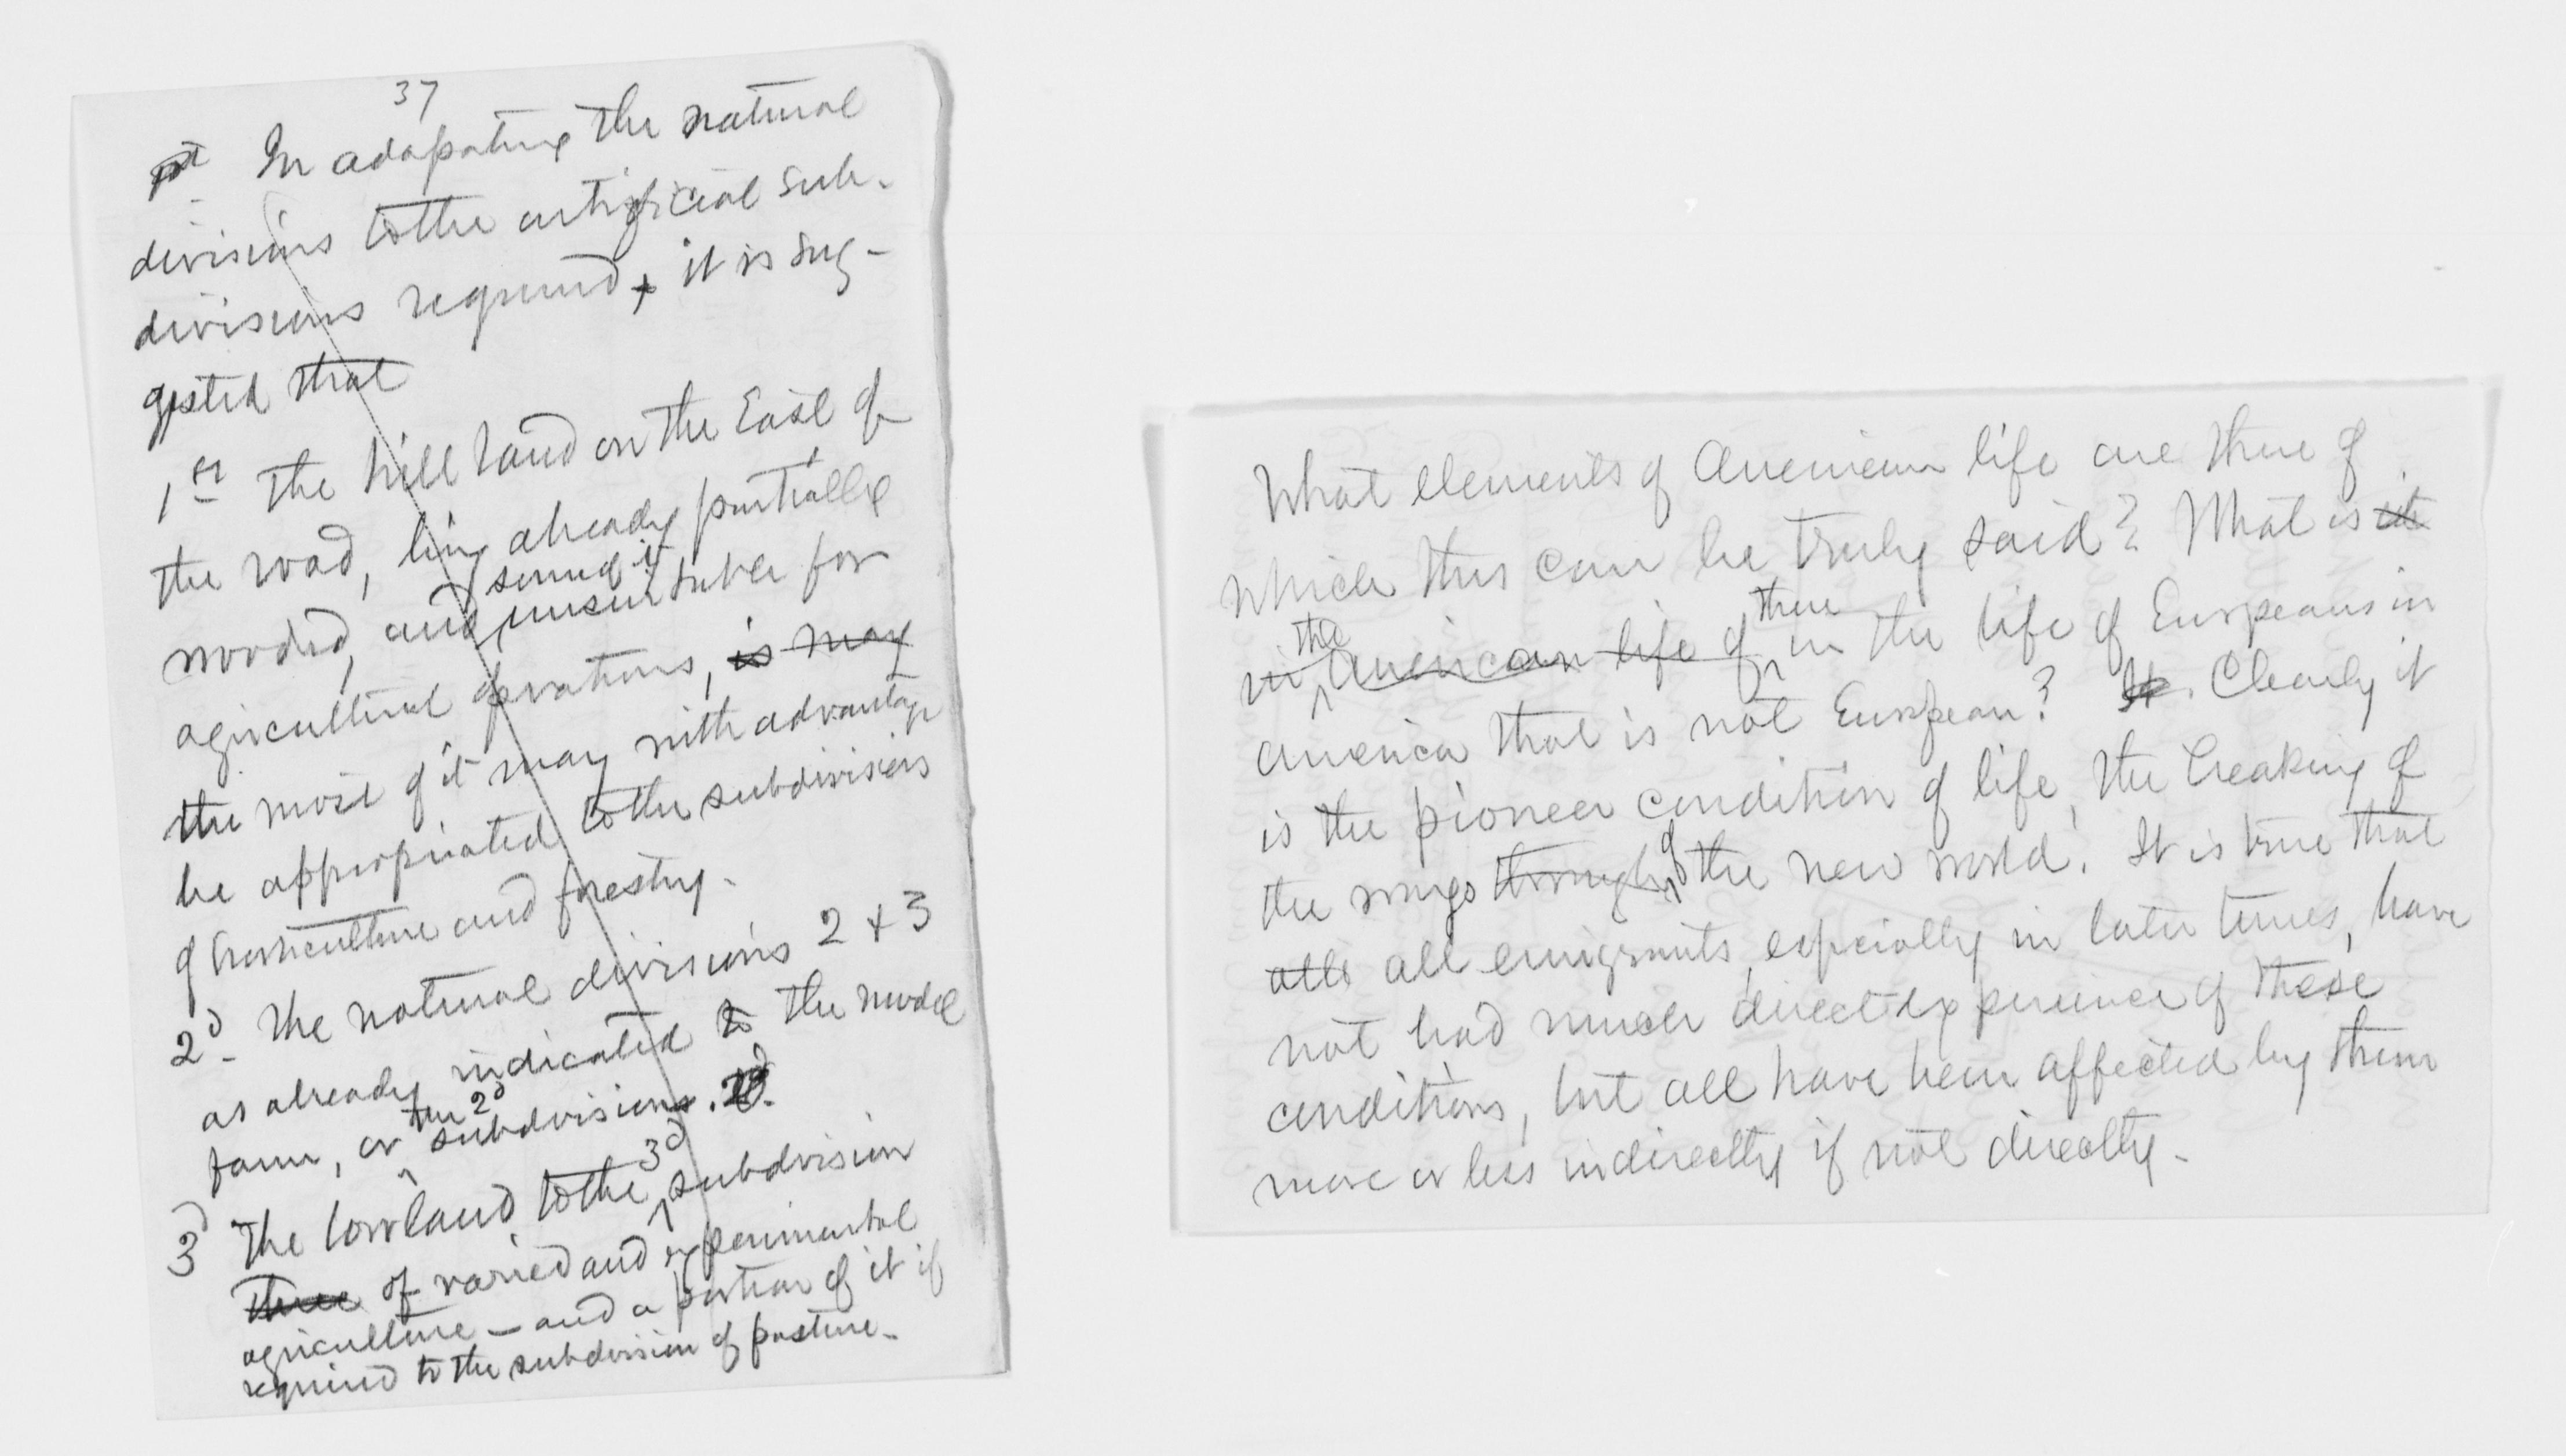 37
In adapating the natural
divisions to the artificial sub-
divisions required, it is sug-
gested that
1st The hill land on the East of
the road, being already partially
wooded, and some of it unsuitable for
agricultural operations, is may
the most of it may with advantage
be appropriated to the subdivisions
of horticulture and forestry.
2d The natural divisions 2 + 3
as already indicated to the model
farm, or the 2d subdivisions.
3d The low land to the 3d subdivision
of varied and experimental
agriculture — and a portion of it if
required to the subdivision of pasture.
What elements of American life are there of
which this can be truly said? What is it
in the American life of there in the life of Europeans in
America that is not European? It. Clearly it
is the pioneer condition of life, the breaking of
the ways through of the new world. It is true that
all emigrants, especially in later times, have
not had much direct experience of these
conditions, but all have been affected by them
more or less indirectly if not directly.